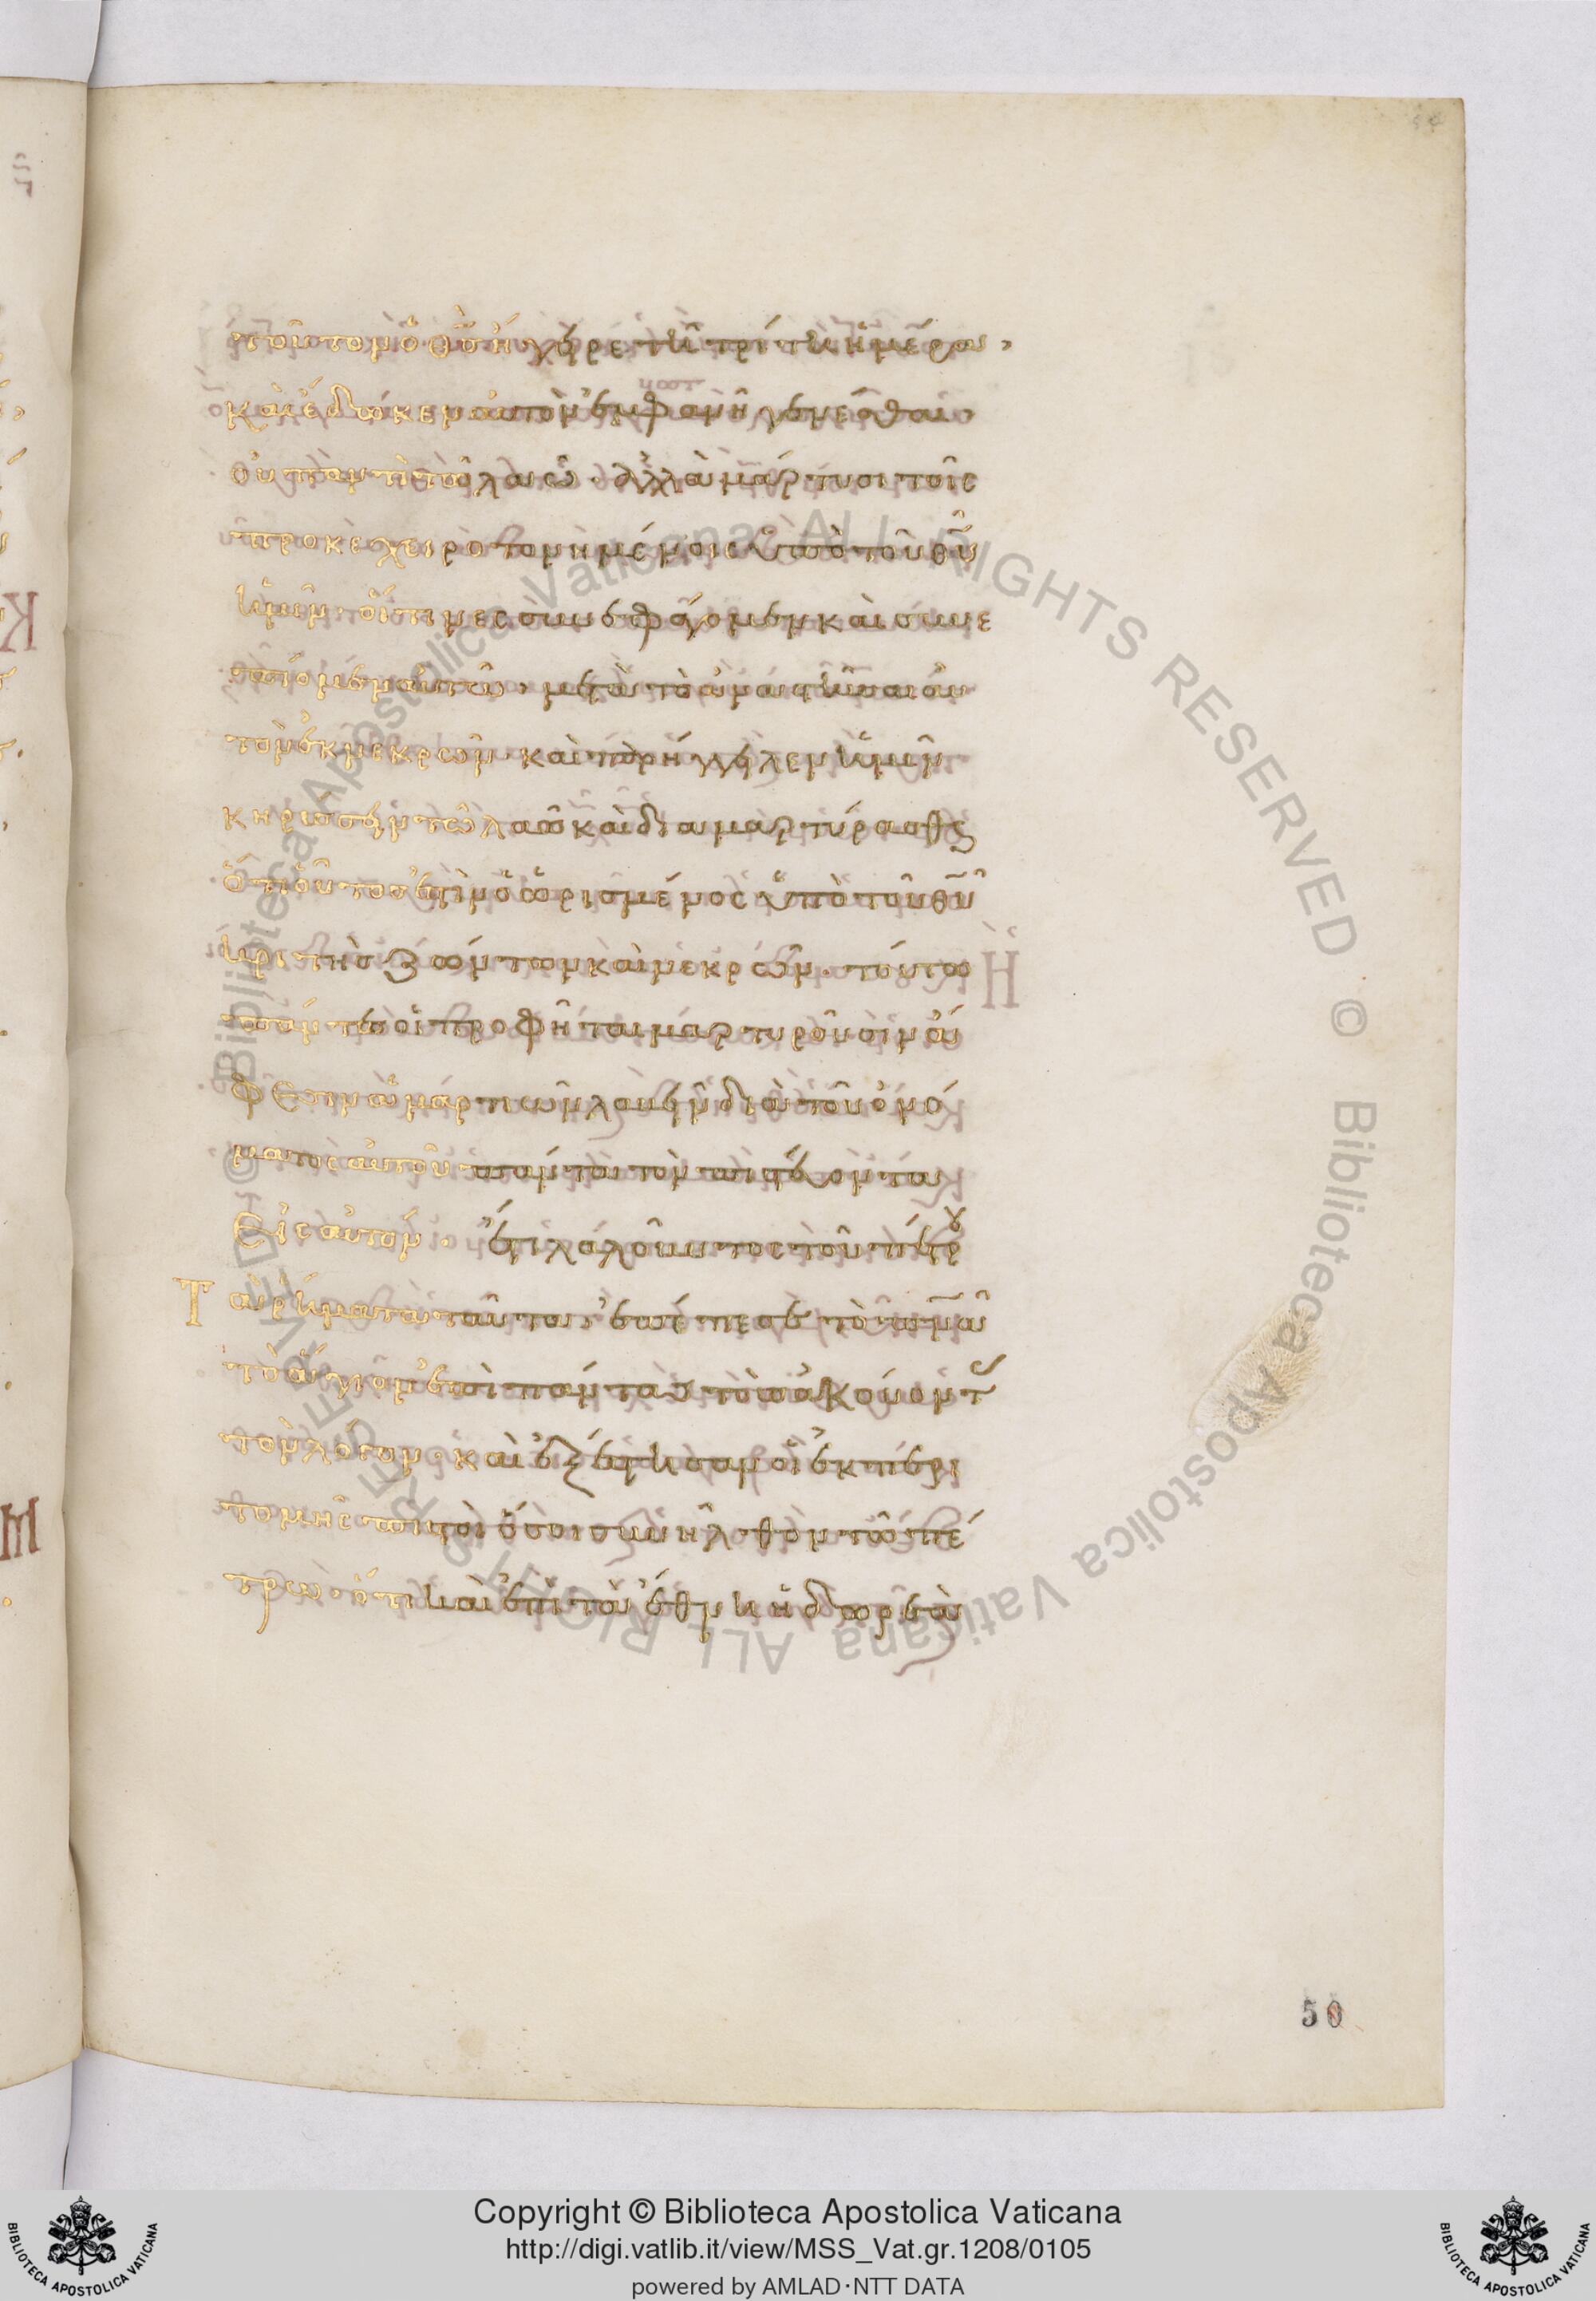 τοῦτον ὁ θ̅ς̅ ἤγειρε τῆ τρίτη ἡμέρα,
καὶ ἔδωκεν αὐτὸν ἐμφανῆ γενέσθαι·
οὐ παντὶ τῶ λαῶ· ἀλλὰ μάρτυσι τοῖς
προκεχειροτονημένοις ὑπὸ τοῦ θ̅υ̅
ἡμῖν· οἵτινες συνεφάγομεν καὶ συνε
πίομεν αὐτῶ· μετὰ τὸ ἀναστῆναι αὐ
τὸν ἐκ νεκρῶν· καὶ παρήγγειλεν ἡμῖν
κηρύξαι τῶ λαῶ καὶ διαμαρτύρασθαι
ὅτι οὗτός ἐστιν ὁ ὡρισμένος ὑπὸ τοῦ θ̅υ̅
κριτὴς ζώντων καὶ νεκρῶν· τούτω
πάντες οἱ προφῆται μαρτυροῦσιν ἄ
φεσιν ἁμαρτιῶν λαβεῖν διὰ τοῦ ὀνό
ματος αὐτοῦ πάντα τὸν πιστεύοντα
εἰς αὐτόν· ἔτι λαλοῦντος τοῦ πέτρου
Τὰ ῥήματα ταῦτα, ἐπέπεσε τὸ π̅ν̅α̅
τὸ ἅγιον ἐπὶ πάντας τοὺς ἀκούοντ
τὸν λόγον· καὶ ἐξέστησαν οἱ ἐκ περι
τομῆς πιστοὶ ὅσοι συνῆλθον τῶ πέ
τρω· ὅτι καὶ ἐπὶ τὰ ἔθνη ἡ δωρεὰ
50
© Biblioteca Apostolica Vaticana ALL RIGHTS RESERVED © Biblioteca Apostolica Vaticana ALL RIGHTS RESERVED
Copyright © Biblioteca Apostolica Vaticana
http://digi.vatlib.it/view/MSS_Vat.gr.1208/0105
powered by AMLAD·NTT DATA
BIBLIOTECA APOSTOLICA VATICANA
BIBLIOTECA APOSTOLICA VATICANA